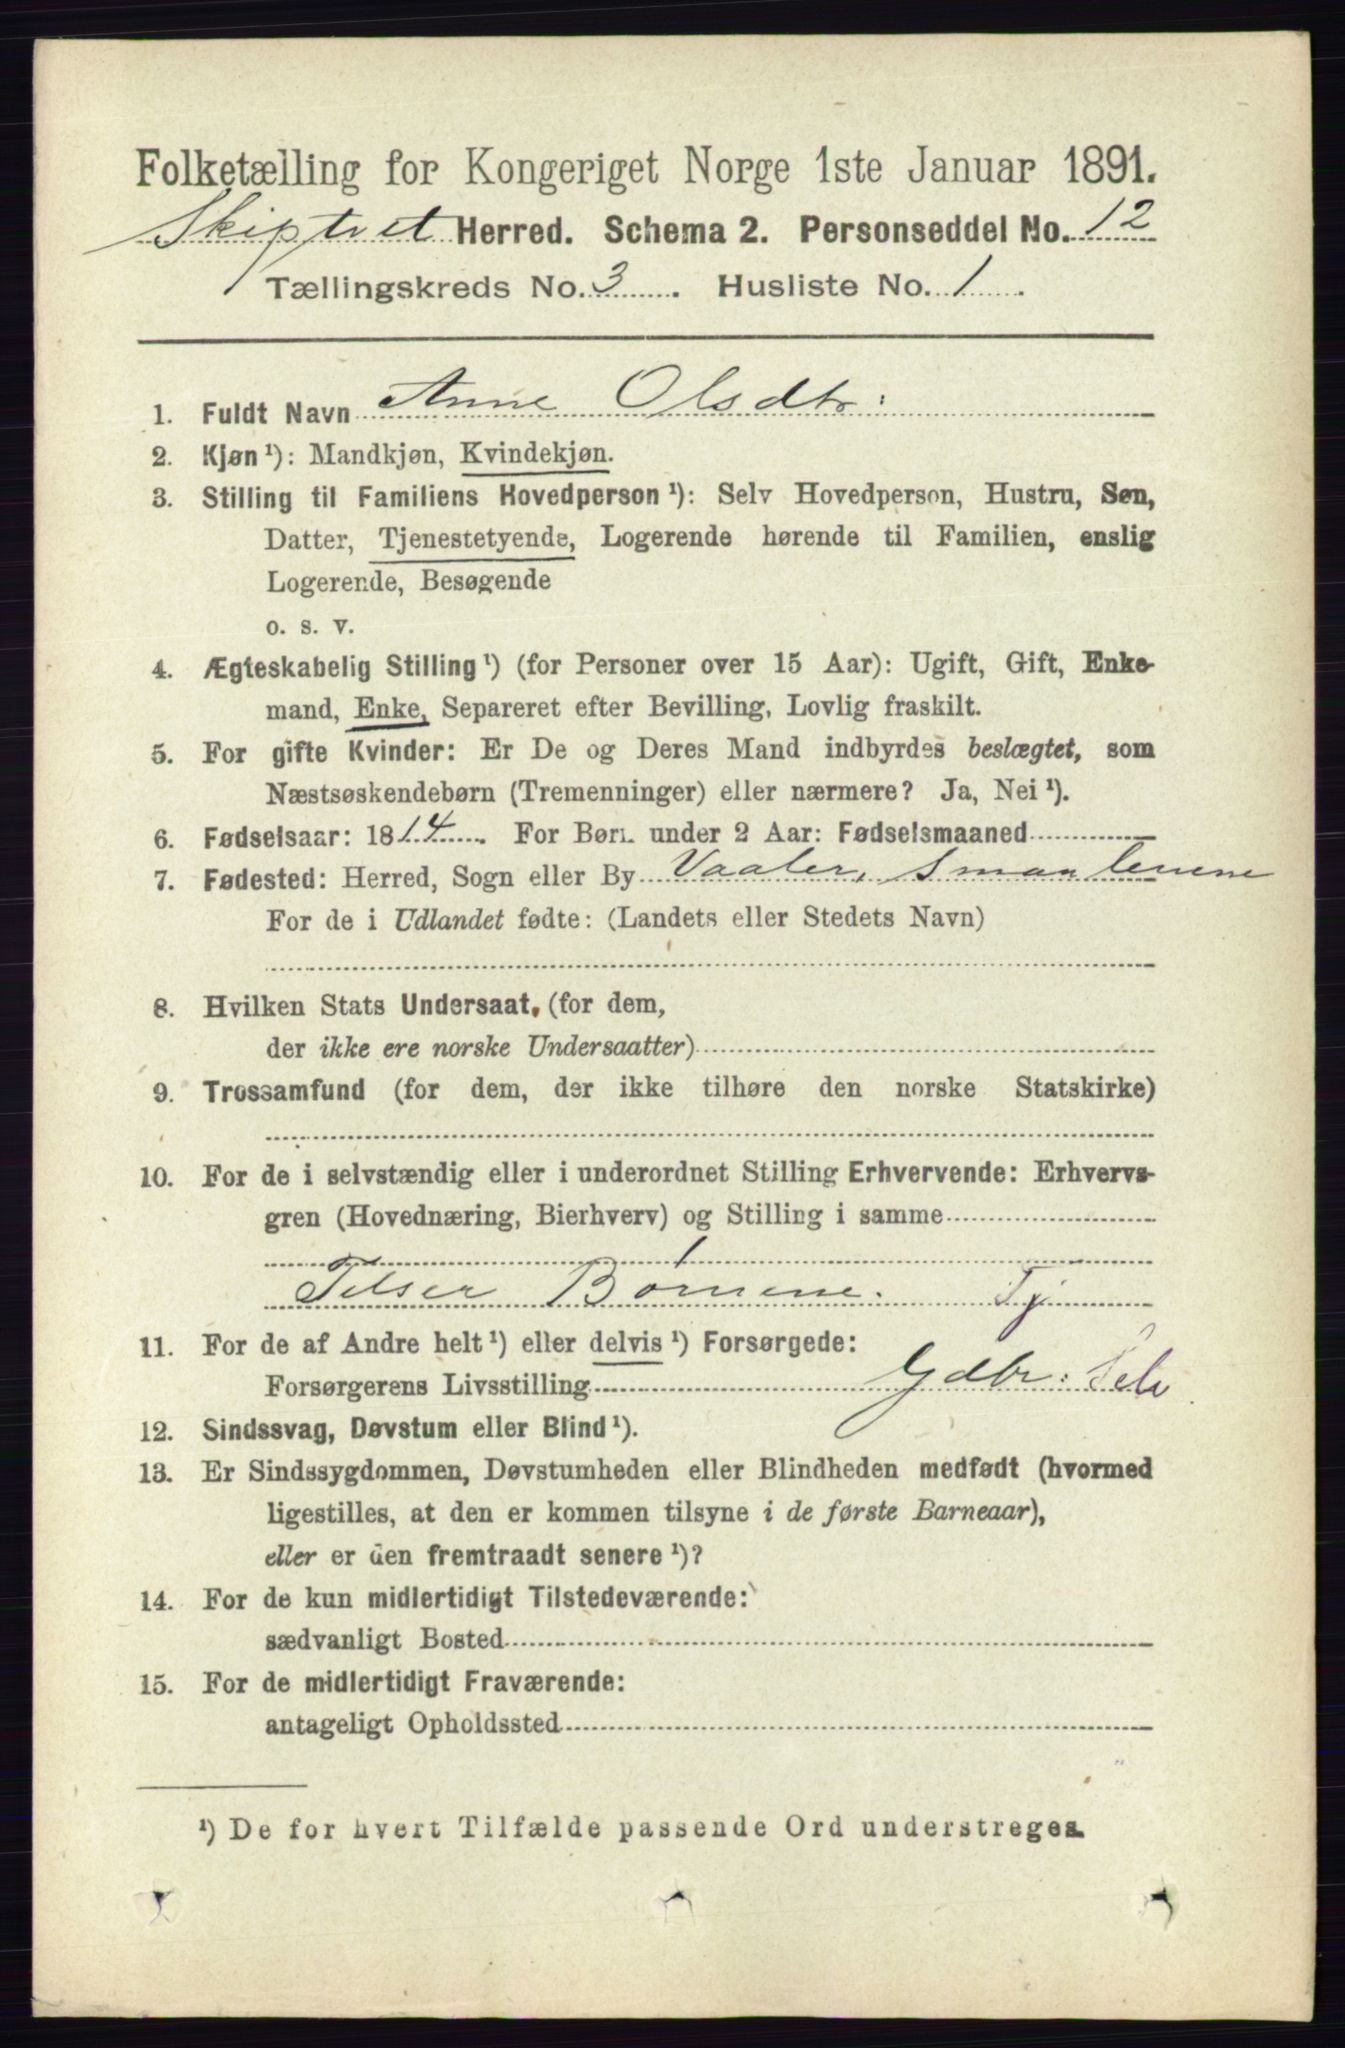 Folketælling for Kongeriget Norge 1ste Januar 1891.
Skiptvet Herred. Schema 2. Personseddel No. 12
Tællingskreds No. 3. Husliste No. 1.
1. Fuldt Navn Anne Olsdtr:
2. Kjøn ¹): Mandkjøn, Kvindekjøn.
3. Stilling til Familiens Hovedperson ¹): Selv Hovedperson, Hustru, Søn,
Datter, Tjenestetyende, Logerende hørende til Familien, enslig
Logerende, Besøgende
o. s. v.
4. Ægteskabelig Stilling ¹) (for Personer over 15 Aar): Ugift, Gift, Enke-
mand, Enke, Separeret efter Bevilling, Lovlig fraskilt.
5. For gifte Kvinder: Er De og Deres Mand indbyrdes beslægtet, som
Næstsøskendebørn (Tremenninger) eller nærmere? Ja, Nei ¹).
6. Fødselsaar: 1814. For Børn under 2 Aar: Fødselsmaaned
7. Fødested: Herred, Sogn eller By Vaaler, Smaalenene
For de i Udlandet fødte: (Landets eller Stedets Navn)
8. Hvilken Stats Undersaat, (for dem,
der ikke ere norske Undersaatter)
9. Trossamfund (for dem, der ikke tilhøre den norske Statskirke)
10. For de i selvstændig eller i underordnet Stilling Erhvervende: Erhvervs-
gren (Hovednæring, Bierhverv) og Stilling i samme
Børnene. Tj
11. For de af Andre helt ¹) eller delvis ¹) Forsørgede:
Forsørgerens Livsstilling Gdbr: Selv
12. Sindssvag, Døvstum eller Blind ¹).
13. Er Sindssygdommen, Døvstumheden eller Blindheden medfødt (hvormed
ligestilles, at den er kommen tilsyne i de første Barneaar),
eller er den fremtraadt senere ¹)?
14. For de kun midlertidigt Tilstedeværende:
sædvanligt Bosted
15. For de midlertidigt Fraværende:
antageligt Opholdssted
¹) De for hvert Tilfælde passende Ord understreges.